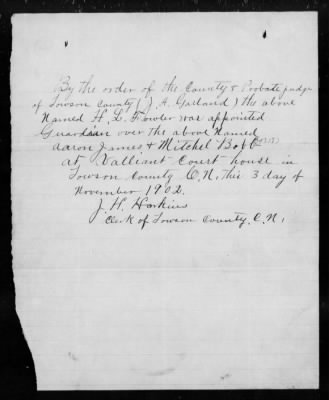 By the order of the County & Probate judge
of Towson County (J. A. Garland) the above
Named H. L. Fowler was appointed
Guardian over the above Named
Aaron James & Mitchel Bobb
at Valliant Court house in
Towson County C.N. this 3 day of
November 1902.
J. H. Harkins
Clerk of Towson County, C.N.